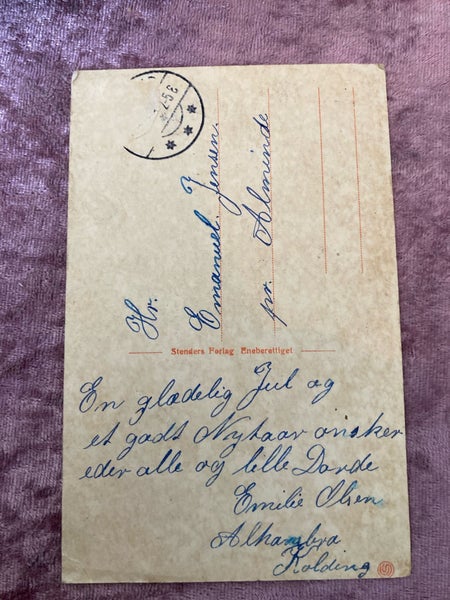 Hr.
Emanuel Jensen.
pr. Alminde
Stenders Forlag Eneberettiget
En glædelig Jul og
et godt Nytaar ønsker
eder alle og lille Dorde
Emilie Olsen
Alhambra
Kolding